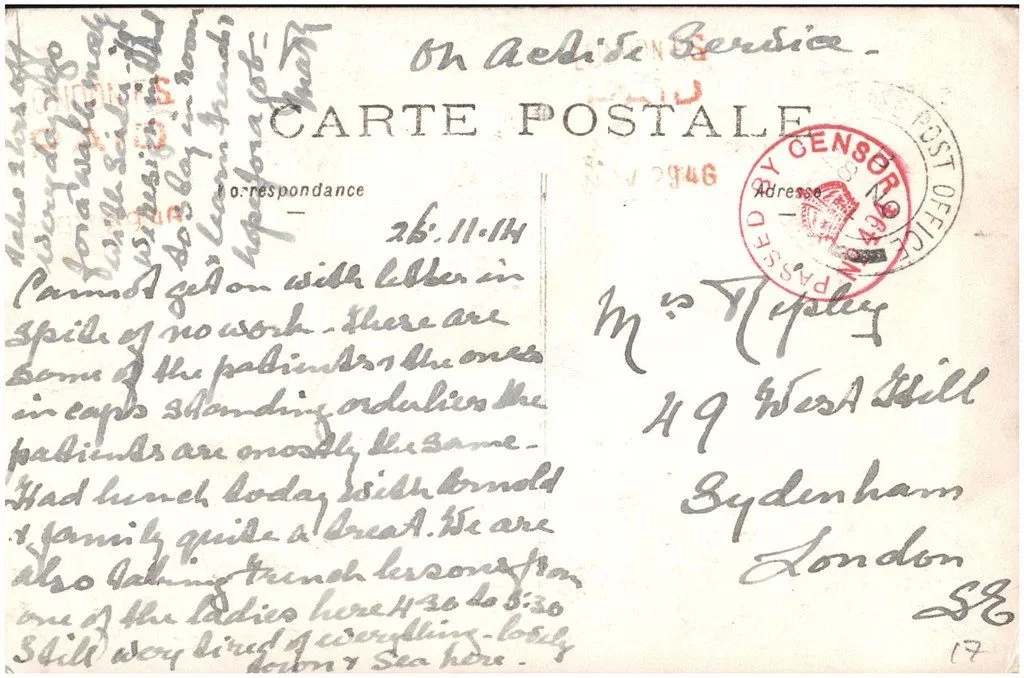 On Active Service -
CARTE POSTALE
Correspondance
Adresse
PASSED BY CENSOR
No 494
POST OFFICE
26.11.14
Cannot get on with letter in
spite of no work - there are
some of the patients & the ones
in caps standing orderlies the
patients are mostly the same -
Had lunch today with Arnold
& family quite a treat. We are
also taking French lessons from
one of the ladies here 4 30 to 5:30
Still very tired of everything - lovely
town & sea here -
every day &
for a walk
with
so to day in
"learn French"
hope for a job -
Mis Ripley
49 West Hill
Sydenham
London
SE
17
PAID